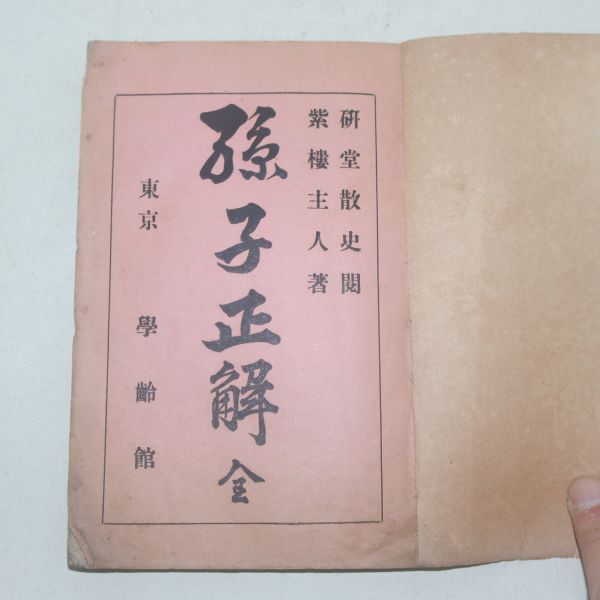 硏堂散史閱
紫樓主人著
孫子正解全
東京 學齡館